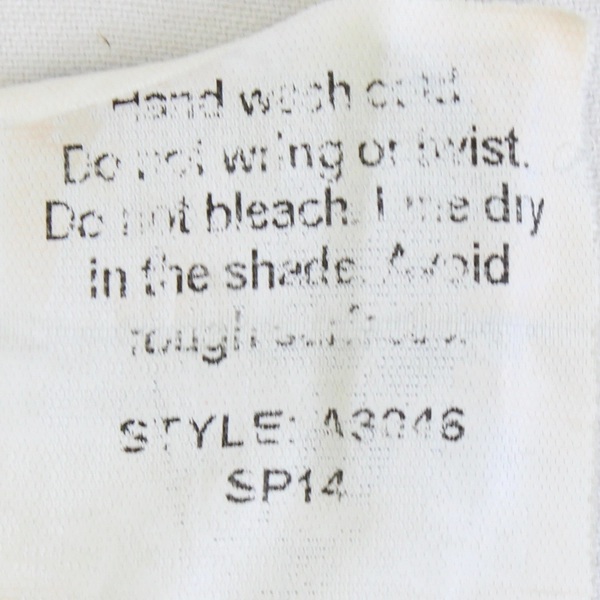 Hand wash cold
Do not wring or twist.
Do not bleach. Line dry
in the shade. Avoid
rough surfaces.
STYLE: A3046
SP14